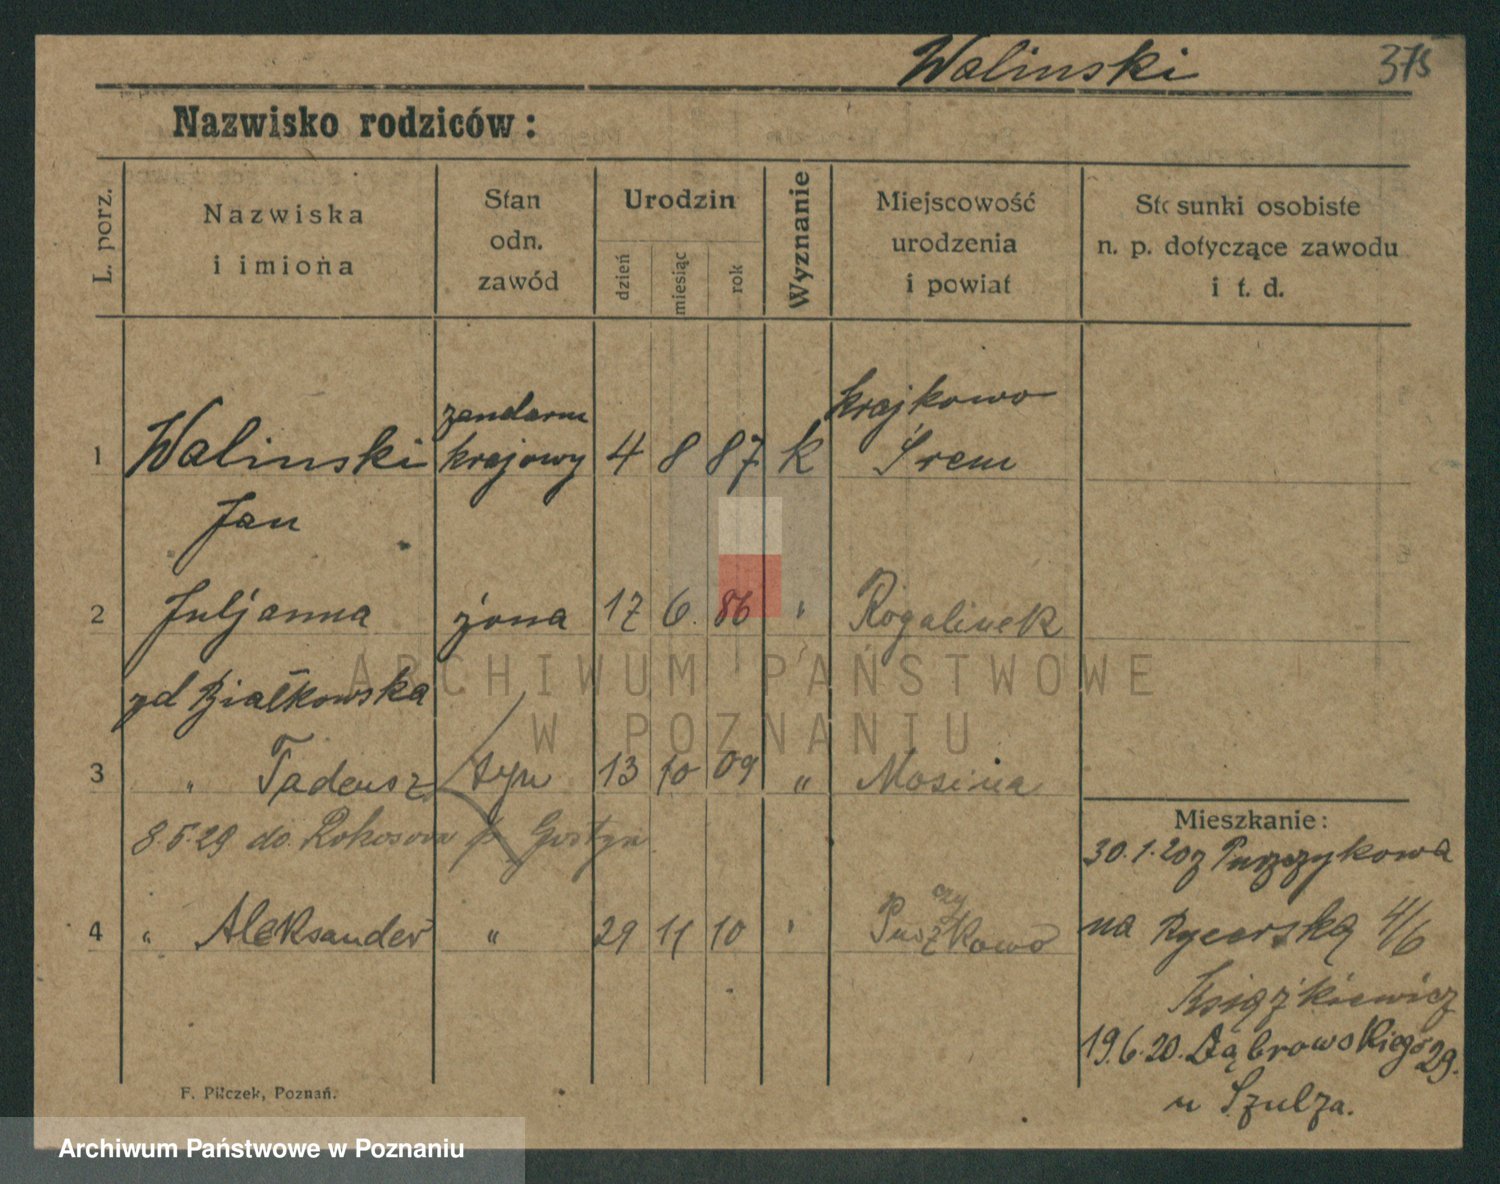 Walinski 375
Nazwisko rodziców:
L. porz.
Nazwiska
i imiona
Stan
odn.
zawód
Urodzin
dzień
miesiąc
rok
Wyznanie
Miejscowość
urodzenia
i powiat
Stosunki osobiste
n. p. dotyczące zawodu
i t. d.
żandarm krajkowo
1 Walinski krajowy 4 8 87 k Śrem
Jan
2 Juljanna żona 17 6. 86 " Rogalinek
zd Białkowska
3 " Tadeusz syn 13 10 09 " Mosina
8.5.29 do Rokosowa p. Gostyn
4 " Aleksander " 29 11 10 '
Mieszkanie:
30.1.20 z Puszczykowa
na Rycerską 4/6
Książkiewicz
19.6.20. Dąbrowskiego 29.
u Szulza.
F. Pilczek, Poznań.
ARCHIWUM PAŃSTWOWE
W POZNANIU
Archiwum Państwowe w Poznaniu